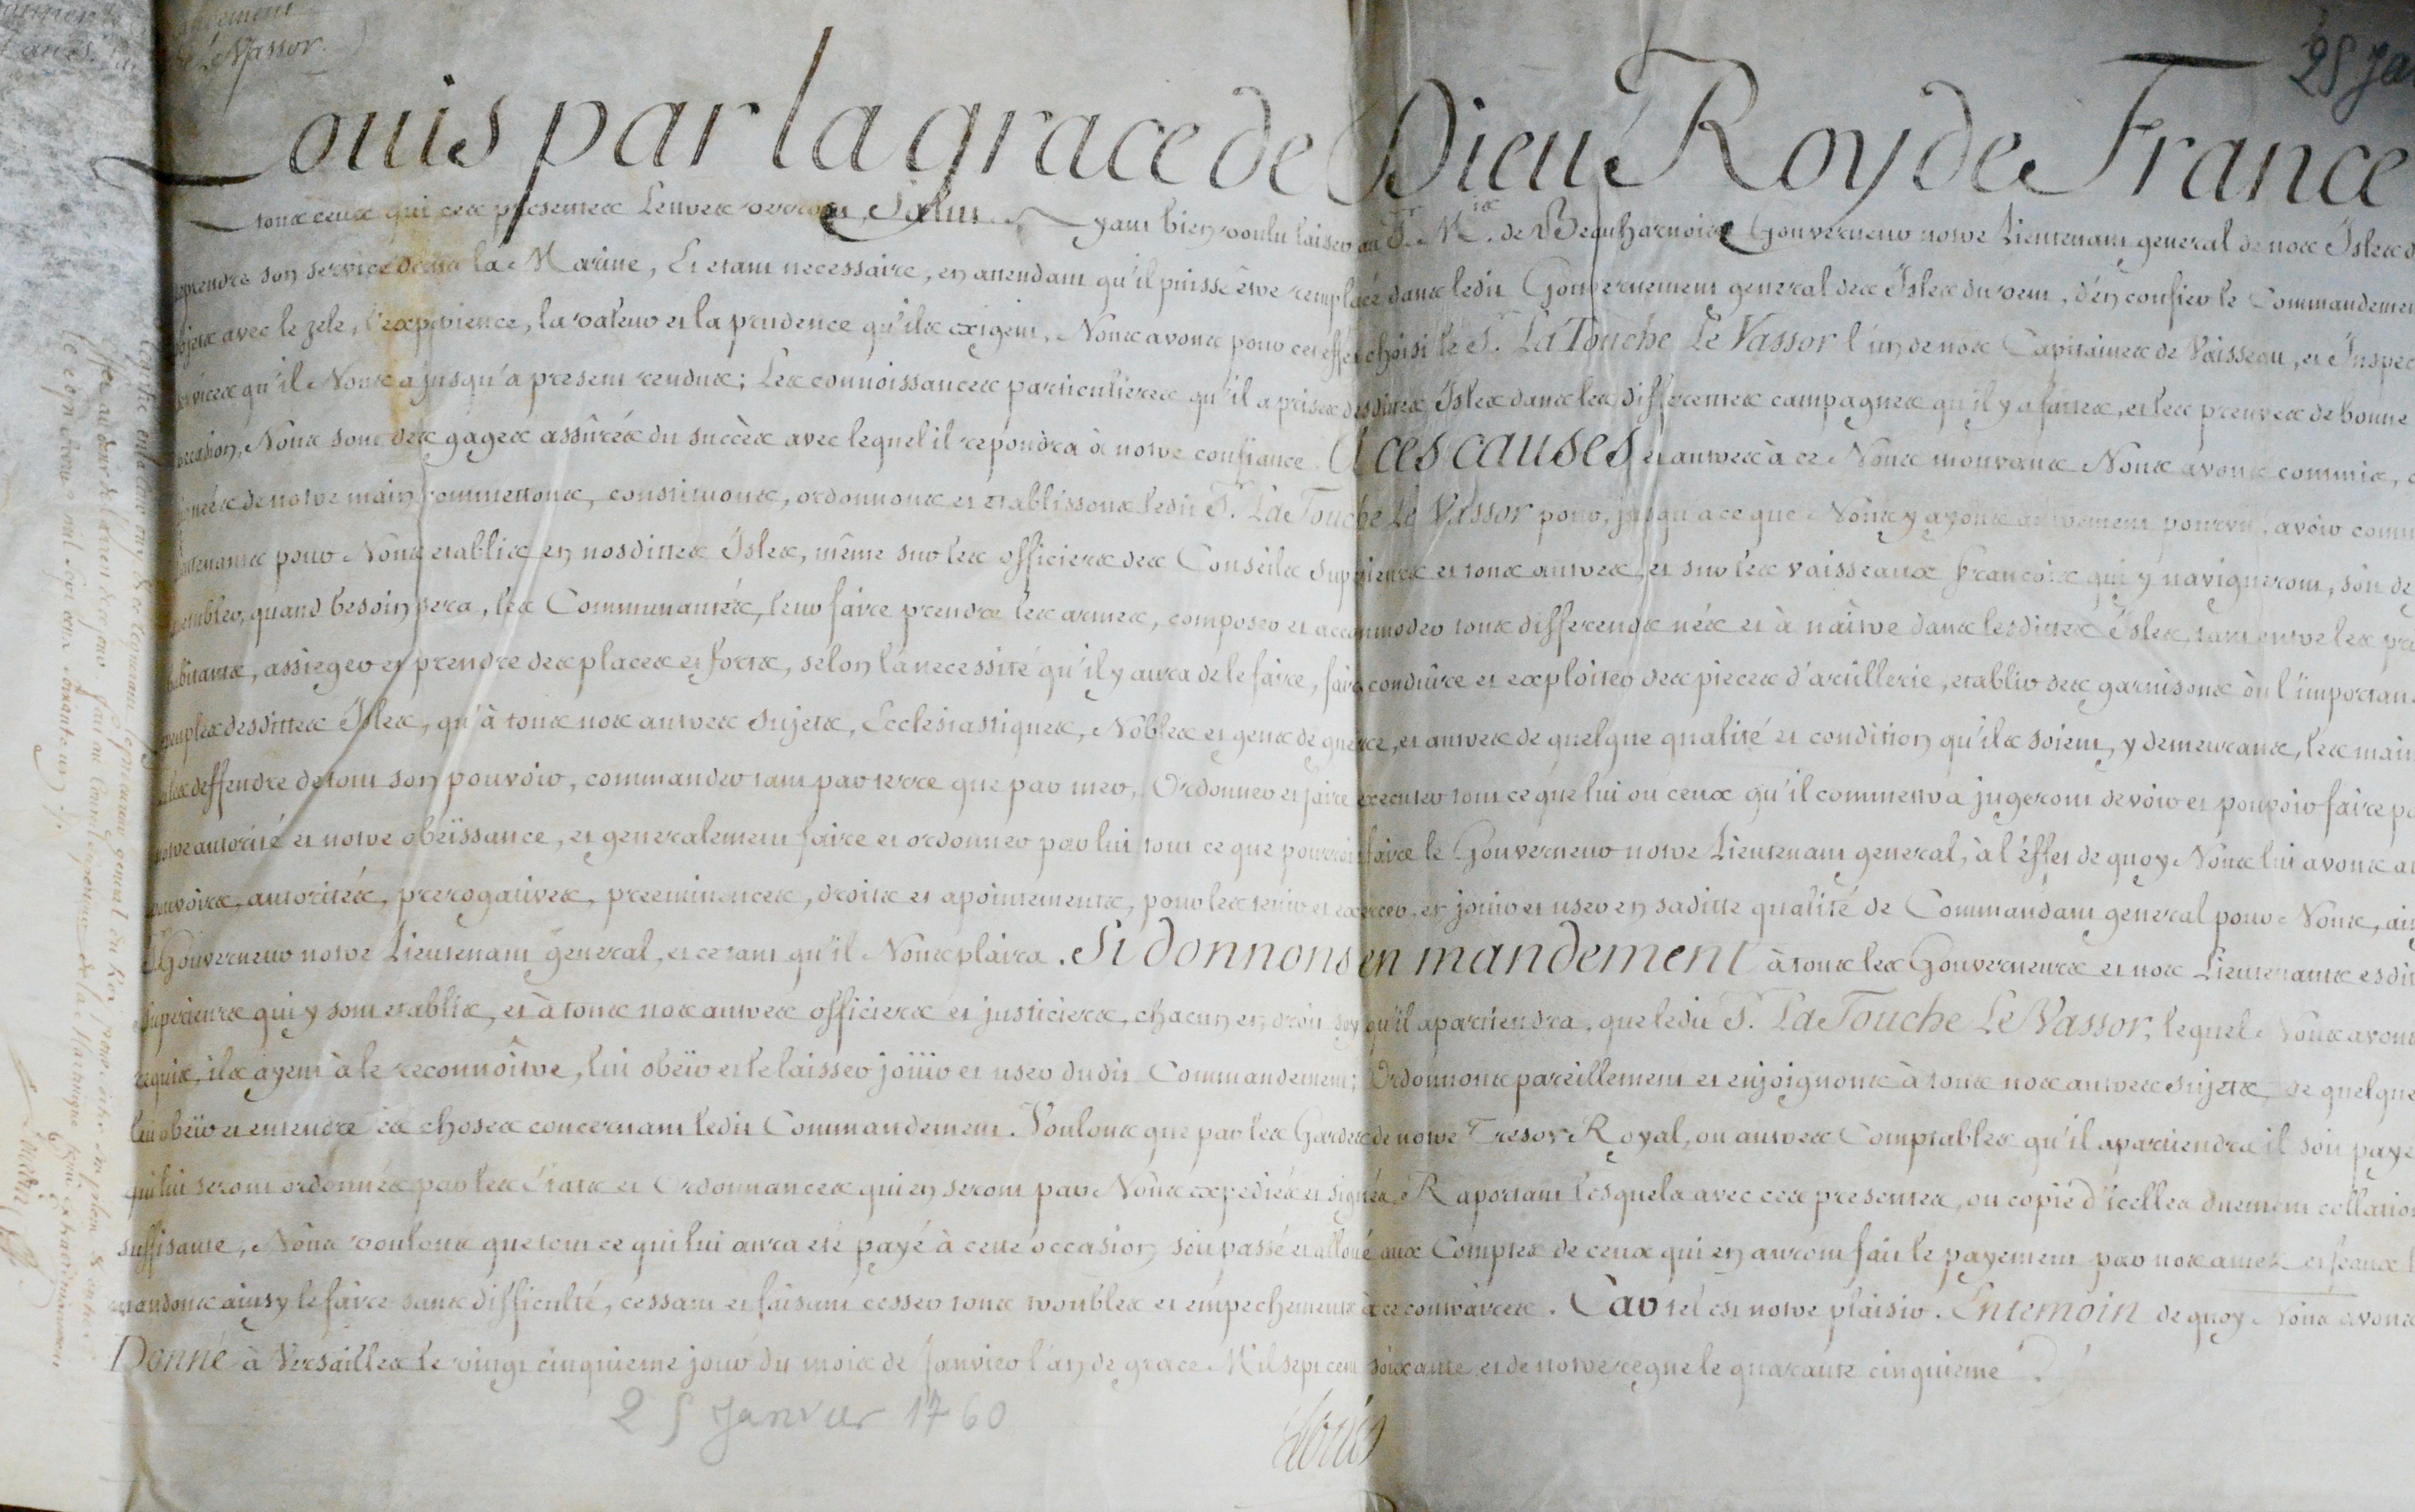 Le Vassor.
25 Ja
Louis par la grace de Dieu Roy de France
tous ceux qui ces presentes Lettres verront, Salut. Ayant bien voulu laisser au S. M.is de Beauharnois Gouverneur notre Lieutenant general de nos Isles d
reprendre son service dans la Marine, Et etant necessaire, en attendant qu'il puisse être remplacé dans ledit Gouvernement general des Isles du vent, d'en confier le Commandemen
avec le zele, l'experience, la valeur et la prudence qu'ils exigent, Nous avons pour cet effet choisi le S. La Touche Le Vassor l'un de nos Capitaines de Vaisseau, et Inspec
services qu'il Nous a jusqu'a present rendus; Les connoissances particulieres qu'il a prises desdittes Isles dans les differentes campagnes qu'il y a faittes, et les preuves de bonne
occasion, Nous sont des gages assûrés du succès avec lequel il repondra à notre confiance. A ces causes et autres à ce Nous mouvans Nous avons commis,
signées de notre main commettons, constituons, ordonnons et etablissons ledit S. La Touche Le Vassor pour, jusqu'a ce que Nous y ayons autrement pourvu, avoir comm
Lieutenants pour Nous etablis en nosdittes Isles, même sur les officiers des Conseils Superieurs et tous autres, et sur les vaisseaux francois qui y navigueront, soit de
assembler, quand besoin sera, les Communautés, leur faire prendre les armes, composer et accommoder tous differends nés et à naître dans lesdittes Isles, tant entre les pr
habitants, assieger et prendre des places et forts, selon la necessité qu'il y aura de le faire, faire conduire et exploiter des pieces d'artillerie, etablir des garnisons où l'importan
peuples desdittes Isles, qu'à tous nos autres Sujets, Ecclesiastiques, Nobles et gens de guerre, et autres de quelque qualité et condition qu'ils soient, y demeurants, les main
les deffendre de tout son pouvoir, commander tant par terre que par mer, Ordonner et faire executer tout ce que lui ou ceux qu'il commettra jugeront devoir et pouvoir faire po
notre autorité et notre obeïssance, et generalement faire et ordonner par lui tout ce que pourroit faire le Gouverneur notre Lieutenant general, à l'éffet de quoy Nous lui avons at
pouvoirs, autorités, prerogatives, preeminences, droits et apointements, pour les tenir et exercer, en joüir et user en saditte qualité de Commandant general pour Nous, ain
Gouverneur notre Lieutenant general, et ce tant qu'il Nous plaira. Si donnons en mandement à tous les Gouverneurs et nos Lieutenants esdit
Superieurs qui y sont etablis, et à tous nos autres officiers et justiciers, chacun en droit soy qu'il apartiendra, que ledit S. La Touche Le Vassor, lequel Nous avons
requis, ils ayent à le reconnoître, lui obeïr et le laisser joüir et user dudit Commandement; Ordonnons pareillement et enjoignons à tous nos autres sujets, de quelque
lui obeïr et entendre ès choses concernant ledit Commandement. Voulons que par les Gardes de notre Tresor Royal, ou autres Comptables qu'il apartiendra il soit payé
qui lui seront ordonnés par les Etats et Ordonnances qui en seront par Nous expediés et signés, Raportant lesquels avec ces presentes, ou copie d'icelles duement collation
suffisante, Nous voulons que tout ce qui lui aura eté payé à cette occasion soit passé et alloüé aux Comptes de ceux qui en auront fait le payement par nos amés et feaux
mandons ainsy le faire sans difficulté, cessant et faisant cesser tous troubles et empechements à ce contraires. Car tel est notre plaisir. En temoin de quoy Nous avons
Donné à Versailles le vingt cinquieme jour du mois de Janvier l'an de grace Mil sept cent soixante et de notre regne le quarante cinquieme.
25 Janvier 1760
Louis